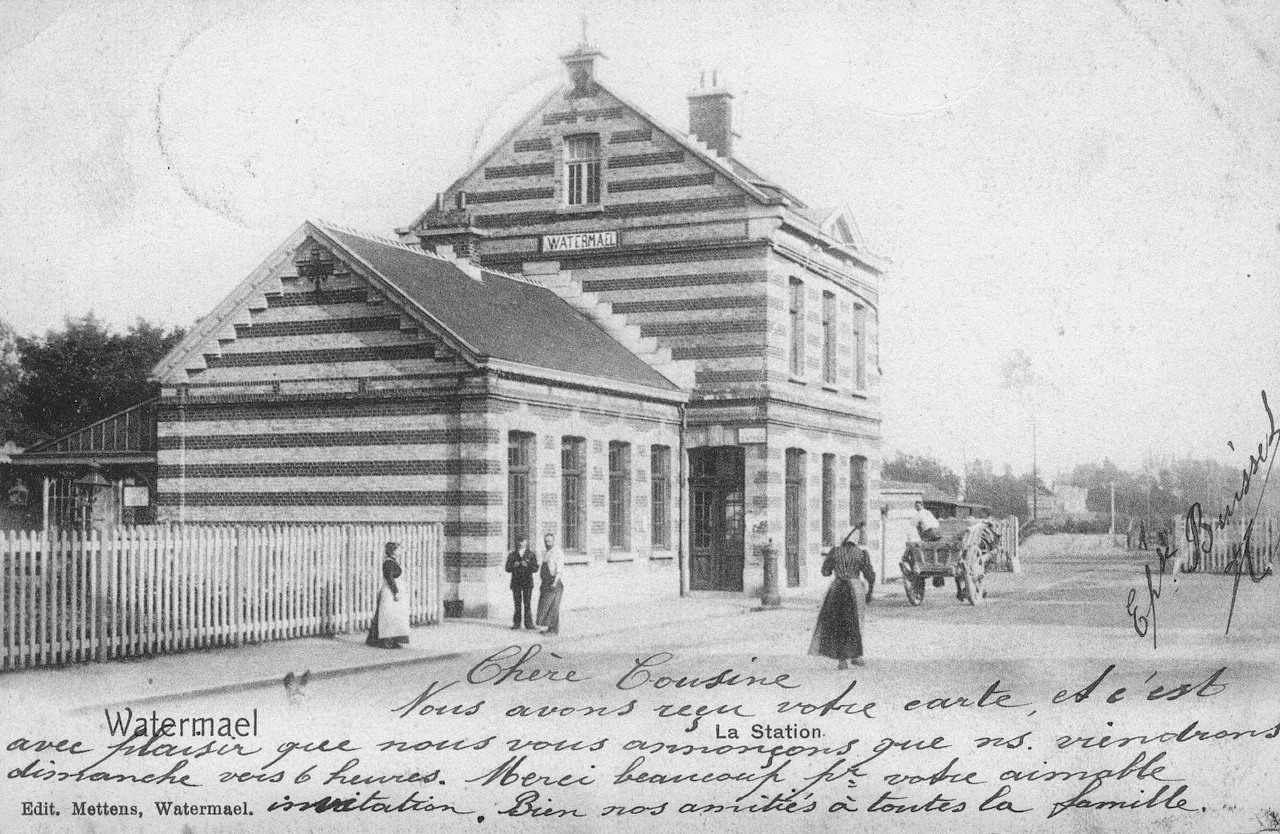 WATERMAEL
Ep.x Buisset
Chère Cousine
Nous avons reçu votre carte, et c'est
Watermael
La Station.
avec plaisir que nous vous annonçons que ns. viendrons
dimanche vers 6 heures. Merci beaucoup pr. votre aimable
Edit. Mettens, Watermael.
invitation. Bien nos amitiés à toutes la famille.